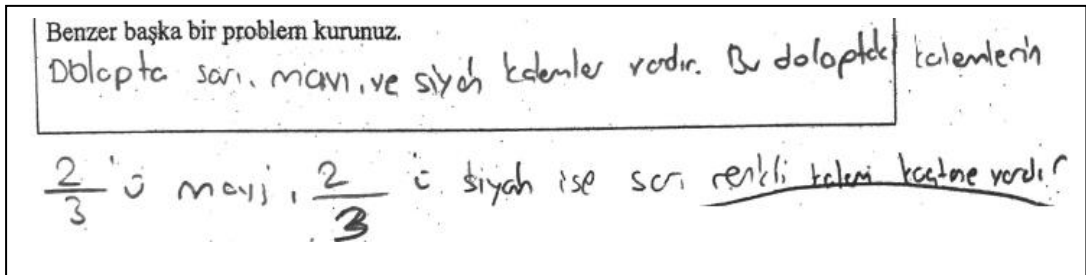 Benzer başka bir problem kurunuz.
Dolapta sarı, mavi, ve siyah kalemler vardır. Bu dolaptaki kalemlerin
2/3 'ü mavi, 2/3 ü siyah ise sarı renkli kalem kaç tane vardır?